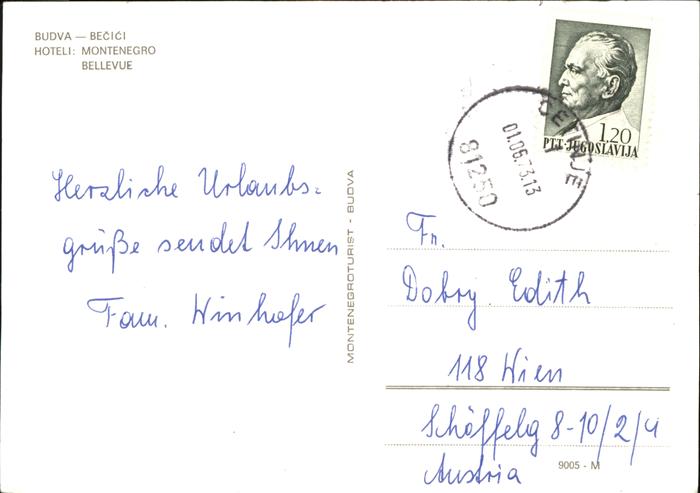 BUDVA — BEČIĆI
HOTELI: MONTENEGRO
BELLEVUE
1.20
PTT-JUGOSLAVIJA
CETINJE
01.06.73.13
81250
Herzliche Urlaubs=
grüße sendet Ihnen
Fam. Winhofer
MONTENEGROTURIST - BUDVA
Fr.
Dobry Edith
118 Wien
Schöffelg 8-10/2/4
Austria
9005 - M